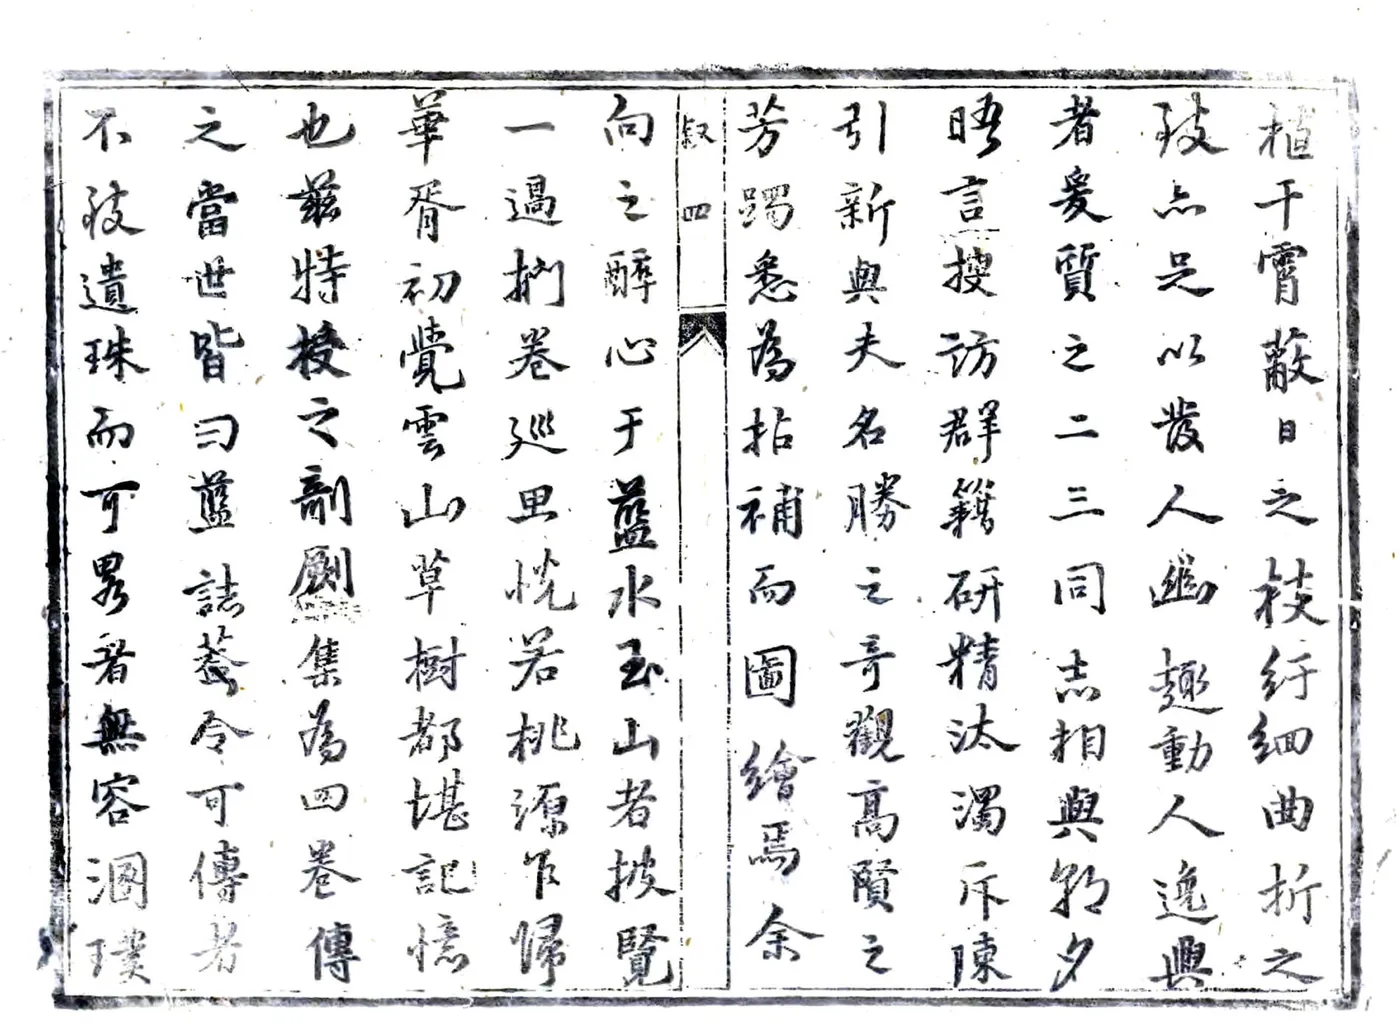 植干霄蔽日之枝紆細曲折之
致亦足以發人幽趣動人逸興
者爰質之二三同志相與朝夕
晤言搜訪群籍研精汰濁斥陳
引新與夫名勝之奇觀高賢之
芳躅悉為拈補而圖繪焉余
叙 四
向之醉心于藍水玉山者披覽
一過捫卷巡思恍若桃源乍歸
華胥初覺雲山草樹都堪記憶
也茲特授之剞劂集為四卷傳
之當世皆曰藍誌蓋令可傳者
不致遺珠而可畧者無容溷璞